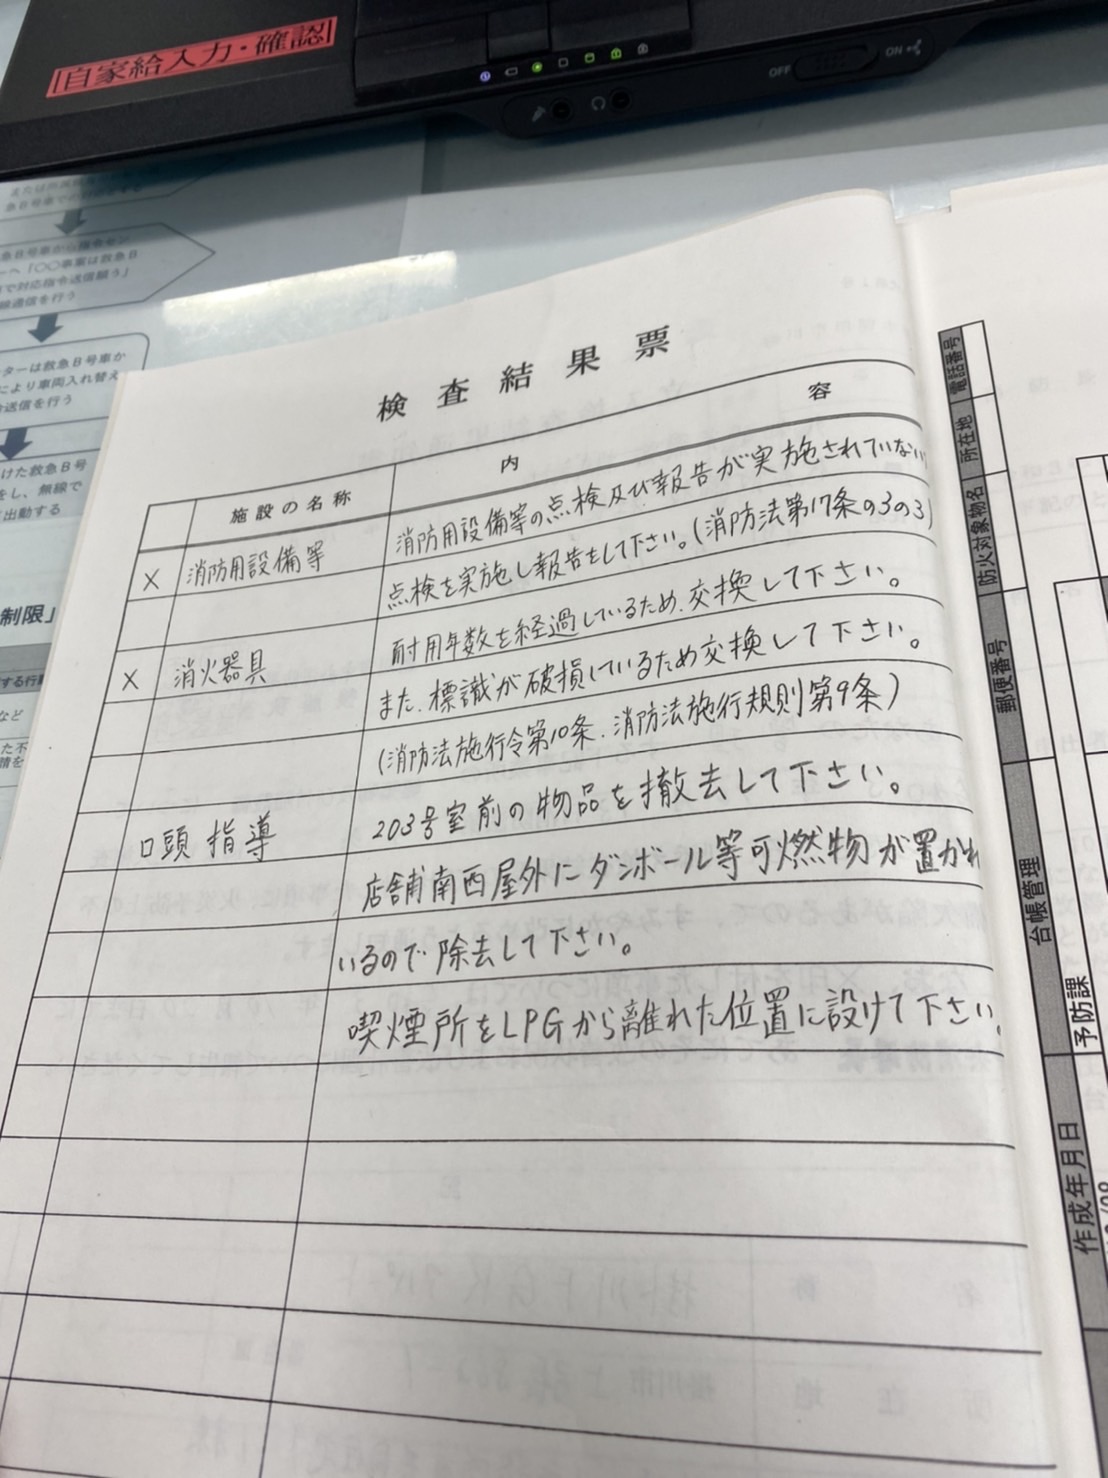 自家給入力・確認
OFF
ON
急B号車での
へ「〇〇事案は救急B
で対応指令送信願う」
通信を行う
ターは救急B号車か
により車両入れ替え
送信を行う
けた救急B号
をし、無線で
出動する
制限」
など
検査結果票
施設の名称
内容
×
消防用設備等
消防用設備等の点検及び報告が実施されていない
点検を実施し報告をして下さい。(消防法第17条の3の3)
×
消火器具
耐用年数を経過しているため、交換して下さい。
また、標識が破損しているため交換して下さい。
(消防法施行令第10条、消防法施行規則第9条)
口頭指導
203号室前の物品を撤去して下さい。
店舗南西屋外にダンボール等可燃物が置かれ
いるので除去して下さい。
喫煙所をLPGから離れた位置に設けて下さい。
電話番号
所在地
防火対象物名
郵便番号
台帳管理
予防課
作成年月日